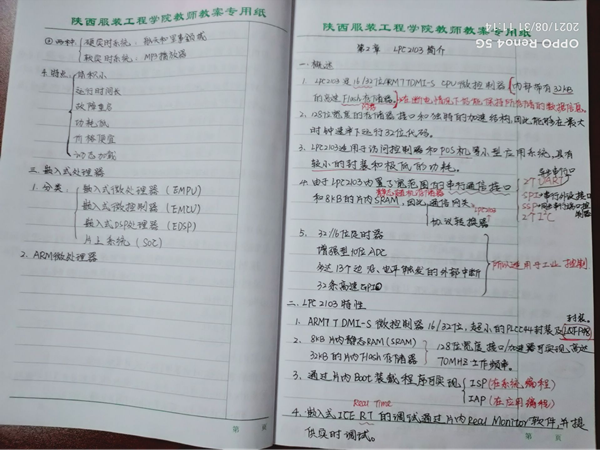 陕西服装工程学院教师教案专用纸
② 两种: 硬实时系统: 航天和军事领域
软实时系统: MP3播放器
4. 特点: 体积小
运行时间长
故障重启
功耗低
价格便宜
动态加载
三. 嵌入式处理器
1. 分类: 嵌入式微处理器 (EMPU)
嵌入式微控制器 (EMCU)
嵌入式DSP处理器 (EDSP)
片上系统 (SOC)
2. ARM微处理器
第 页
陕西服装工程学院教师教案专用纸
2021/08/31 11:14
OPPO Reno4 5G
第2章 LPC2103简介
一. 概述
1. LPC2103是16/32位ARM7TDMI-S CPU微控制器 内部带有32KB
的高速Flash存储器 在断电情况下仍能保持所存储的数据信息。
闪存
2. 128位宽度的存储器接口和独特的加速结构, 因此能够在最大
时钟速率下运行32位代码。
3. LPC2103适用于访问控制器和POS机等小型应用系统, 具有
较小的封装和极低的功耗。
4. 由于LPC2103内置了宽范围的串行通信接口
和8KB的片内SRAM, 因此 通信网关
协议转换器
静态随机存储器
2个UART
SPI 串行外设接口
SSP
2个I²C
5. 32/16位定时器
增强型10位ADC
多达13个边沿、电平触发的外部中断
32条高速GPIO
所以适用于工业控制
二. LPC2103特性
1. ARM7TDMI-S微控制器16/32位, 超小的PLCC44封装及LQFP48
封装。
2. 8KB片内静态RAM (SRAM)
32KB的片内Flash存储器
128位宽度接口/加速器可实现高达
70MHz工作频率。
3. 通过片内Boot装载程序可实现 ISP (在系统编程)
IAP (在应用编程)
Real Time
4. 嵌入式ICE RT的调试通过片内Real Monitor软件, 并提
供实时调试。
第 页